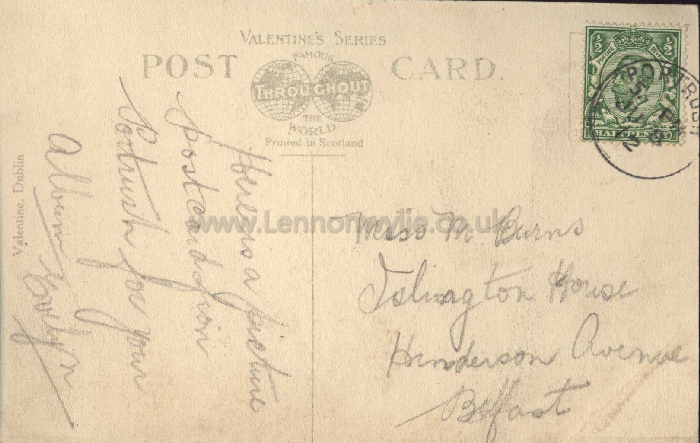 VALENTINE'S SERIES
POST CARD.
FAMOUS
THROUGHOUT
THE
WORLD
Printed in Scotland
Valentine. Dublin
Here is a picture
postcard from
Portrush for your
album Evelyn
Miss M Burns
Islington House
Henderson Avenue
Belfast
½ ½
HALFPENNY
PORTRUSH
www.Lennonwylie.co.uk